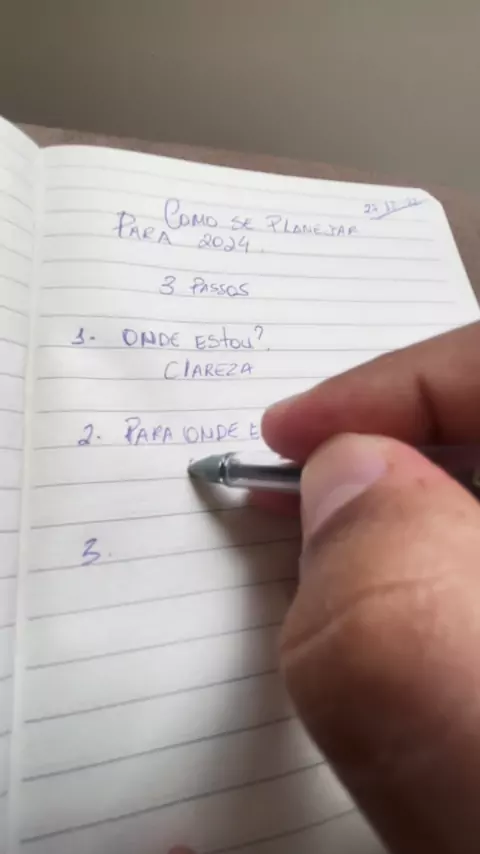 Como se Planejar
Para 2024.
3 Passos
1. Onde estou?
Clareza
2. Para onde e
3.